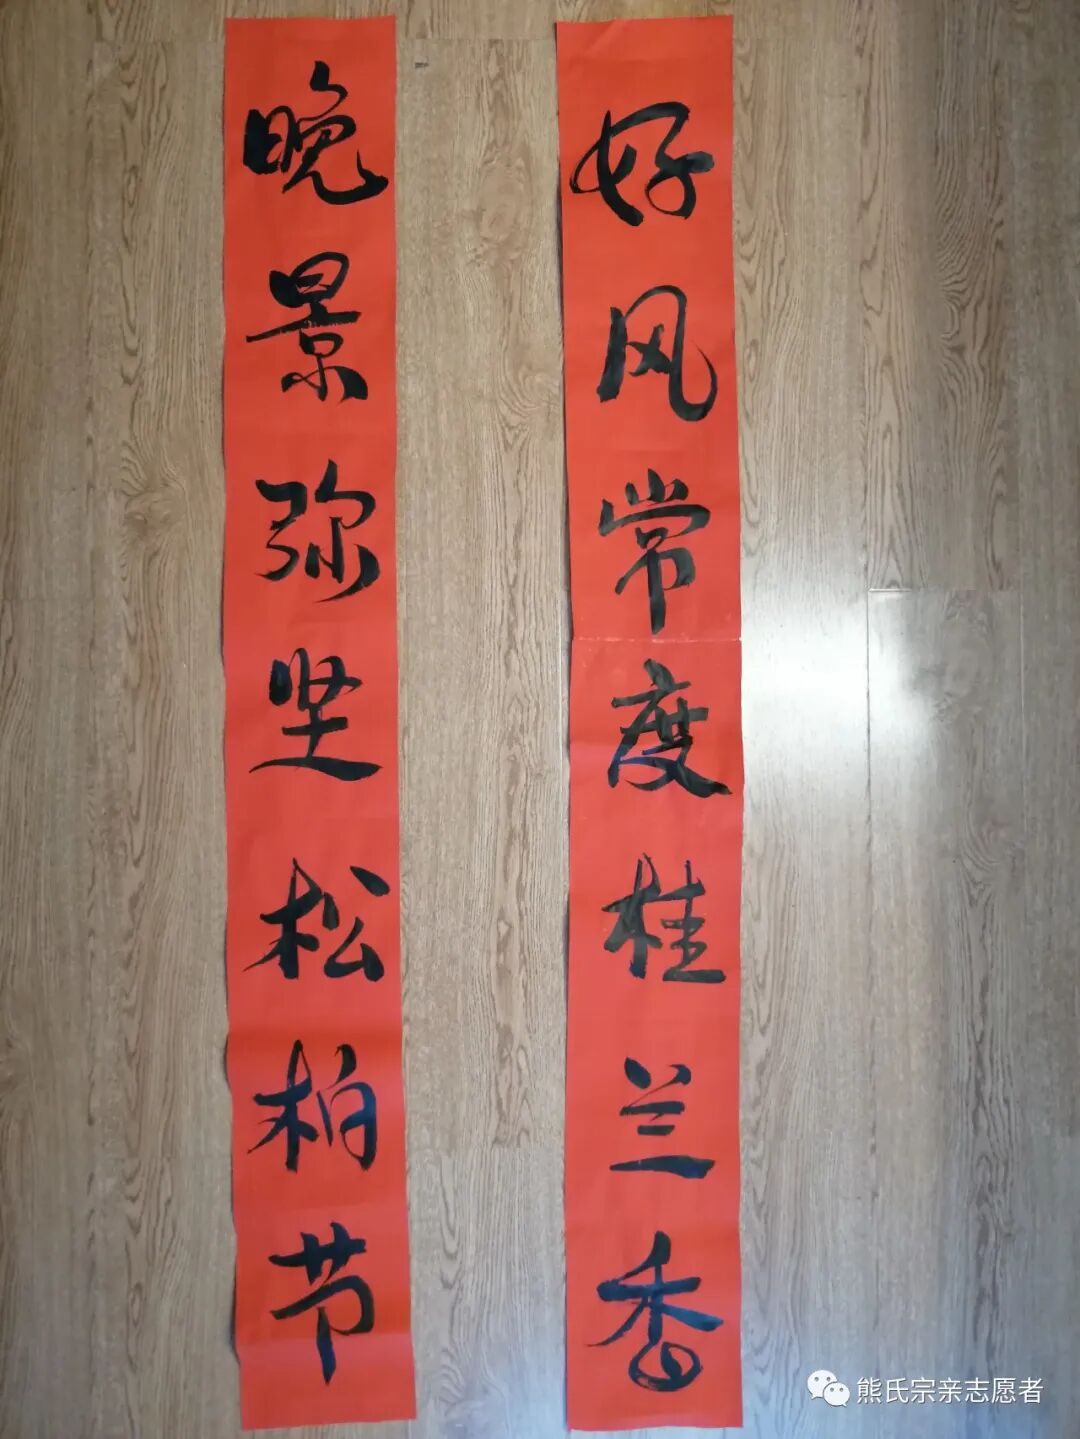 好风常度桂兰香
晚景弥坚松柏节
熊氏宗亲志愿者